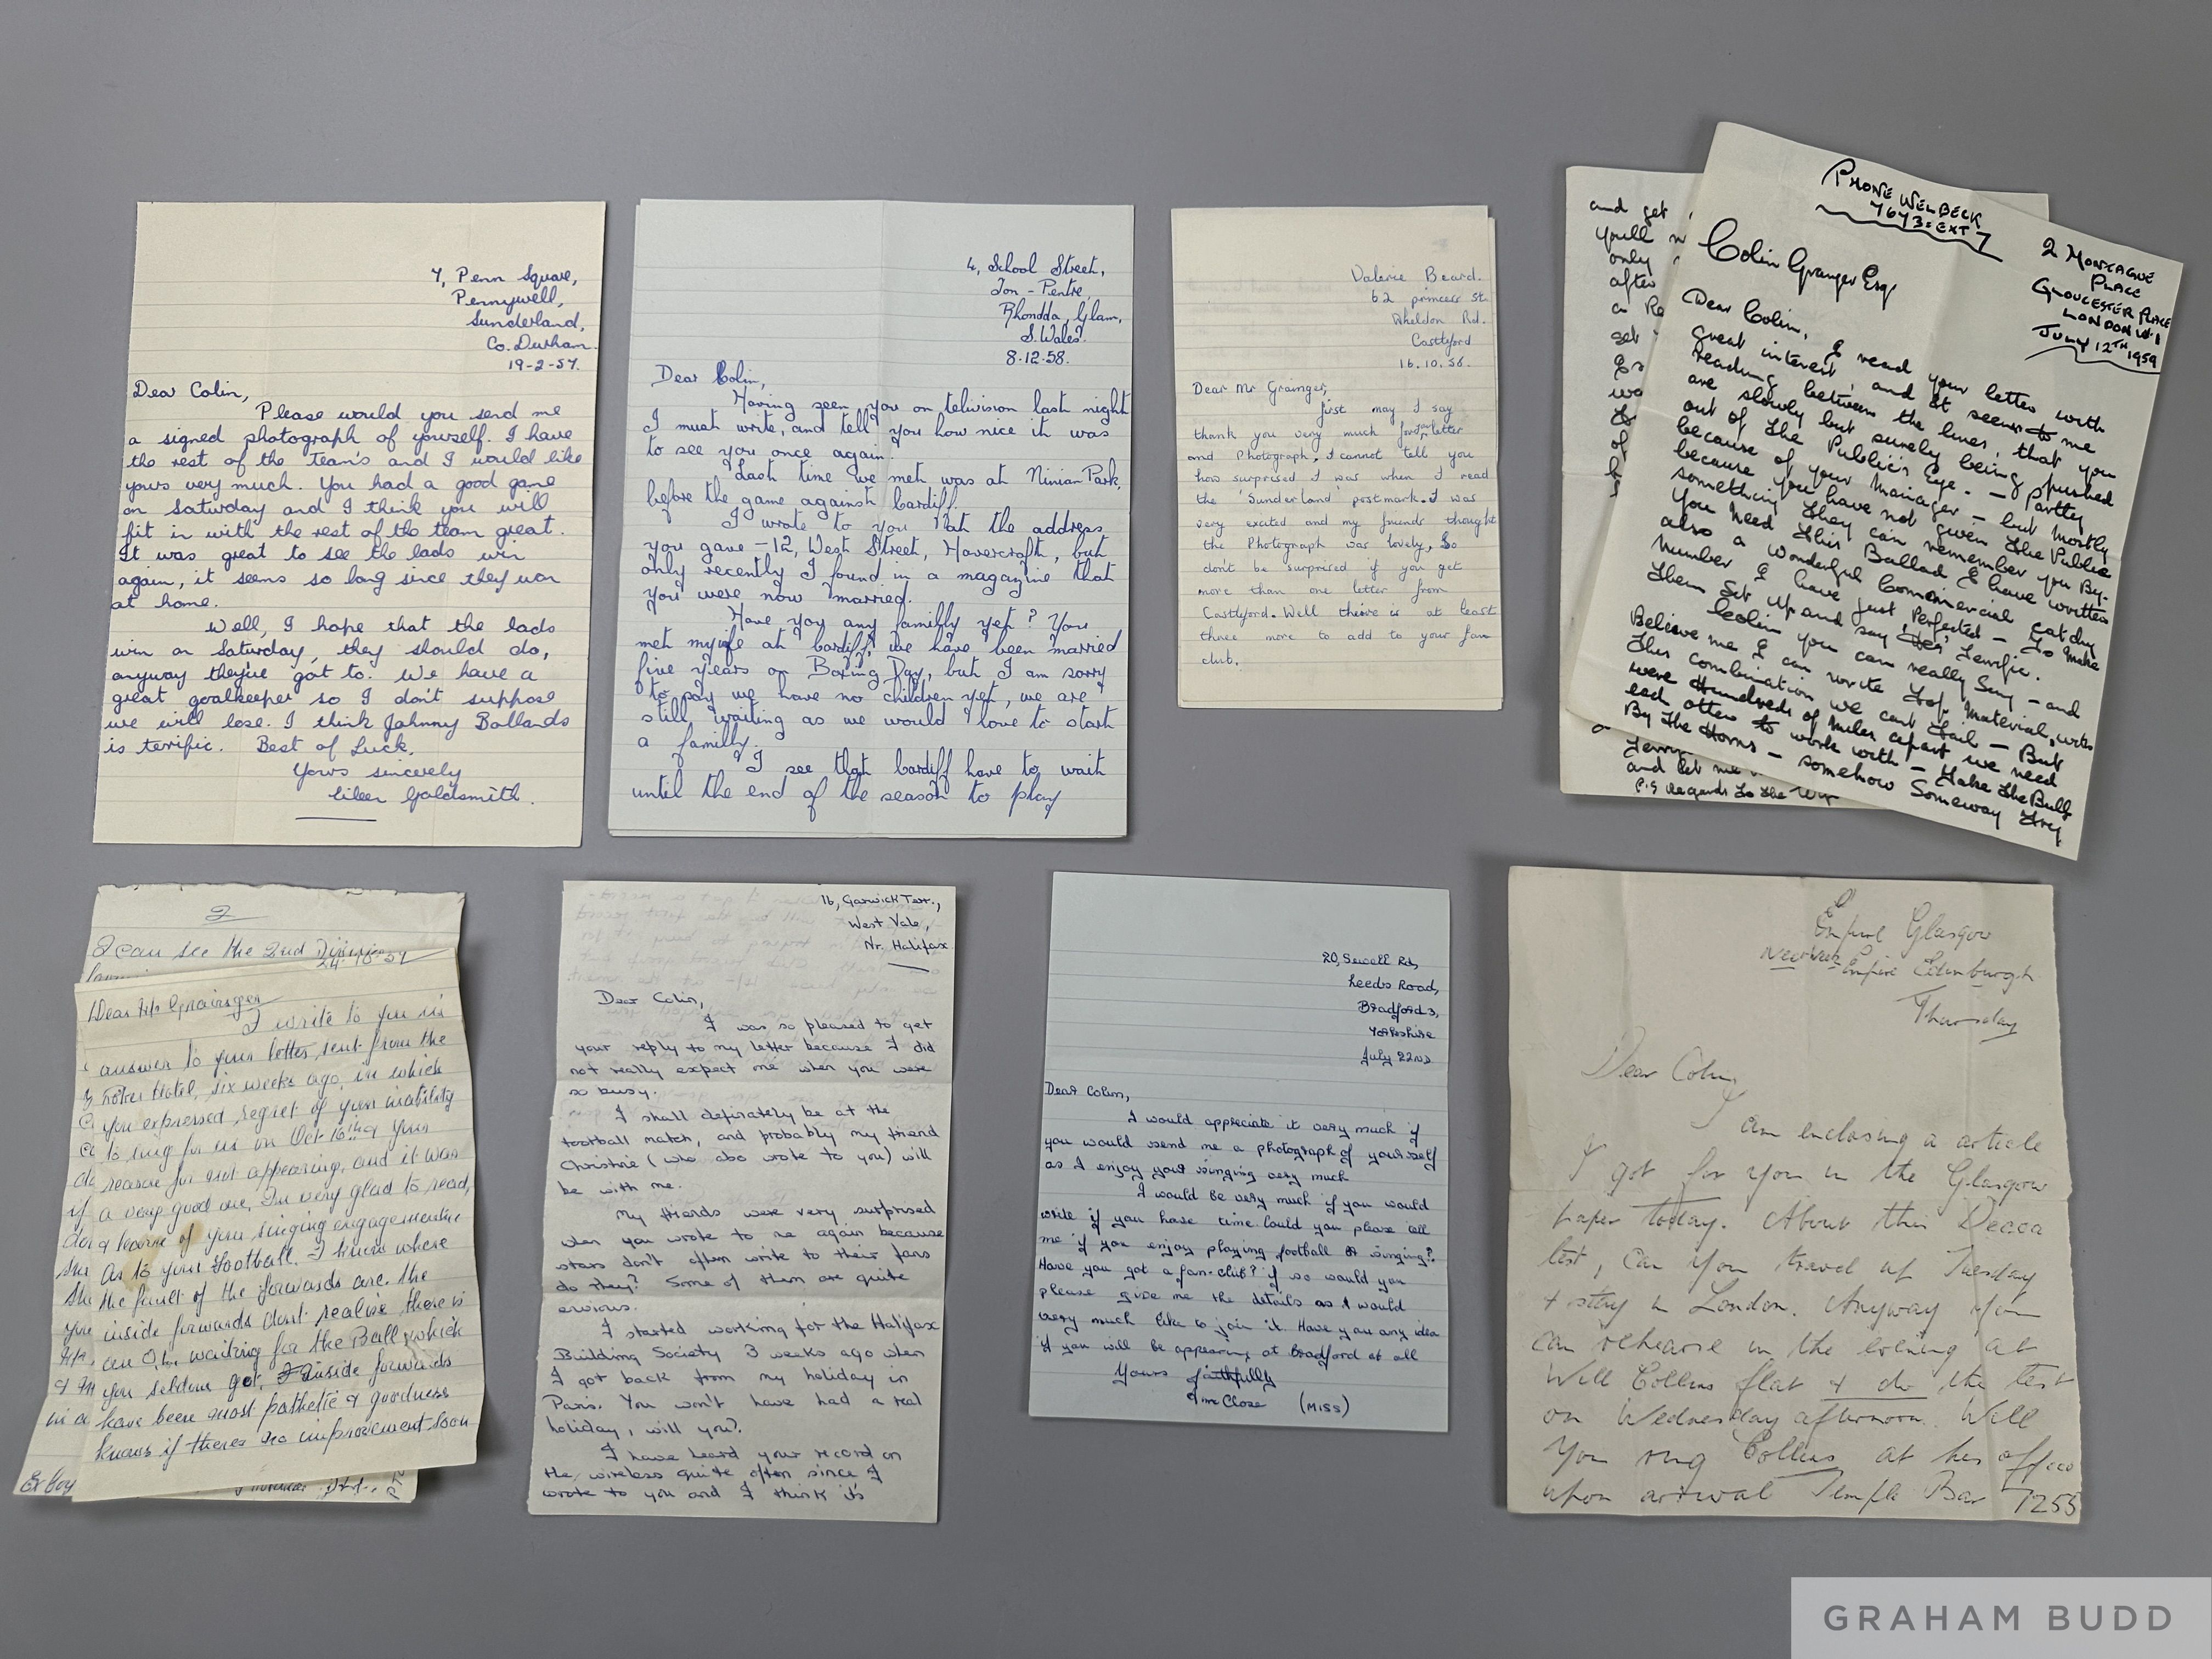 7, Penn Square,
Pennywell,
Sunderland,
Co. Durham.
19-2-57.
Dear Colin,
Please would you send me
a signed photograph of yourself. I have
the rest of the Team's and I would like
yours very much. You had a good game
on Saturday and I think you will
fit in with the rest of the team great.
It was great to see the lads win
again, it seems so long since they won
at home.
Well, I hope that the lads
win on Saturday, they should do,
anyway they've got to. We have a
great goalkeeper so I don't suppose
we will lose. I think Johnny Bollands
is terrific. Best of Luck.
Yours sincerely
Eileen Goldsmith.
4, School Street,
Ton-Pentre,
Rhondda, Glam,
S. Wales.
8.12.58.
Dear Colin,
Having seen you on telivision last night
I must write, and tell you how nice it was
to see you once again.
Last time we met was at Ninian Park,
before the game against Cardiff.
I wrote to you at the address
you gave - 12, West Street, Havercroft, but
only recently I found in a magazine that
you were now married.
Have you any familly yet? You
met my wife at Cardiff, we have been married
five years on Boxing Day, but I am sorry
to say we have no children yet, we are
still waiting as we would love to start
a familly.
I see that Cardiff have to wait
until the end of the season to play
Valerie Beard.
62 princess St.
Wheldon Rd.
Castlyford
16.10.58.
Dear Mr Grainger,
first may I say
thank you very much for your letter
and Photograph, I cannot tell you
how surprised I was when I read
the 'Sunderland' postmark. I was
very excited and my friends thought
the Photograph was lovely, So
don't be surprised if you get
more than one letter from
Castlyford. Well theire is at least
three more to add to your fan
club.
and get
you'll
only
after
a Re
get
PHONE WELBECK
7673: EXT 7
2 MONTAGUE
PLACE
GLOUCESTER PLACE
LONDON W.1
JULY 12TH 1959
Colin Granger Esq
Dear Colin, I read your letter with
great interest, and it seems to me
reading between the lines, that you
are slowly but surely being pushed
out of the Public's Eye. — Partly
because of your Manager — but mostly
because you have not given the Public
something they can remember you By.
You need this Ballad I have written
also a wonderful Commercial catchy
number I have just Perfected — to make
them Set up and say Terrific.
Colin you can really Sing — and
Believe me I can write Top. Material, with
this combination we cant fail — But
were Hundreds of Miles apart we need
each other to work with — take the Bull
By the Horns — somehow Someway try
Terry
and let me
P.S Regards to the Wife
2
I can see the 2nd Division
24.10.57
Dear Mr Grainger
I write to you in
answer to your letter sent from the
Hotel, six weeks ago, in which
you expressed regret of your inability
to sing for us on Oct 16th & your
reason for not appearing, and it was
a very good one, I'm very glad to read,
& learn of your singing engagements.
As to your Football. I know where
the fault of the forwards are. the
inside forwards dont realise there is
an O.L. waiting for the Ball, which
you seldom get. inside forwards
have been most pathetic & goodness
knows if theres no improvement soon
16, Garwick Terr.,
West Vale,
Nr. Halifax
Dear Colin,
I was so pleased to get
your reply to my letter because I did
not really expect one when you were
so busy.
I shall definately be at the
football match, and probably my friend
Christine (who also wrote to you) will
be with me.
My friends were very surprised
when you wrote to me again because
stars don't often write to their fans
do they? Some of them are quite
envious.
I started working for the Halifax
Building Society 3 weeks ago when
I got back from my holiday in
Paris. You won't have had a real
holiday, will you?
I have heard your record on
the wireless quite often since I
wrote to you and I think it's
20, Sewell Rd,
Leeds Road,
Bradford 3,
Yorkshire
July 22nd
Dear Colin,
I would appreciate it very much if
you would send me a photograph of yourself
as I enjoy your singing very much
I would be very much if you would
write if you have time. Could you please tell
me if you enjoy playing football or singing?
Have you got a fan-club? if so would you
please give me the details as I would
very much like to join it. Have you any idea
if you will be appearing at Bradford at all
Yours faithfully
Close (MISS)
Empire Glasgow
Next week Empire Edinburgh
Thursday
Dear Colin,
I am enclosing a article
I got for you in the Glasgow
paper today. About this Decca
test, Can you travel up Tuesday
& stay in London. Anyway you
can rehearse in the evening at
Will Collins flat & do the test
on Wednesday afternoon. Will
you ring Collins at his office
upon arrival Temple Bar 7255
GRAHAM BUDD